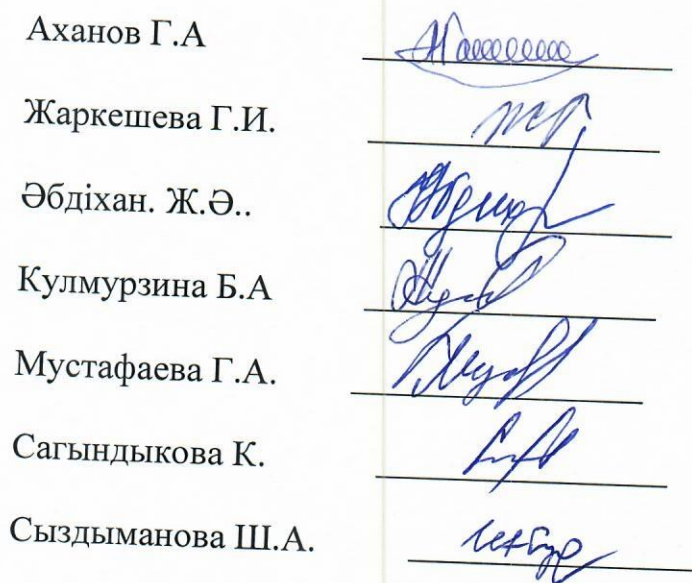 Аханов Г.А
Жаркешева Г.И.
Әбдіхан. Ж.Ә..
Кулмурзина Б.А
Мустафаева Г.А.
Сагындыкова К.
Сыздыманова Ш.А.